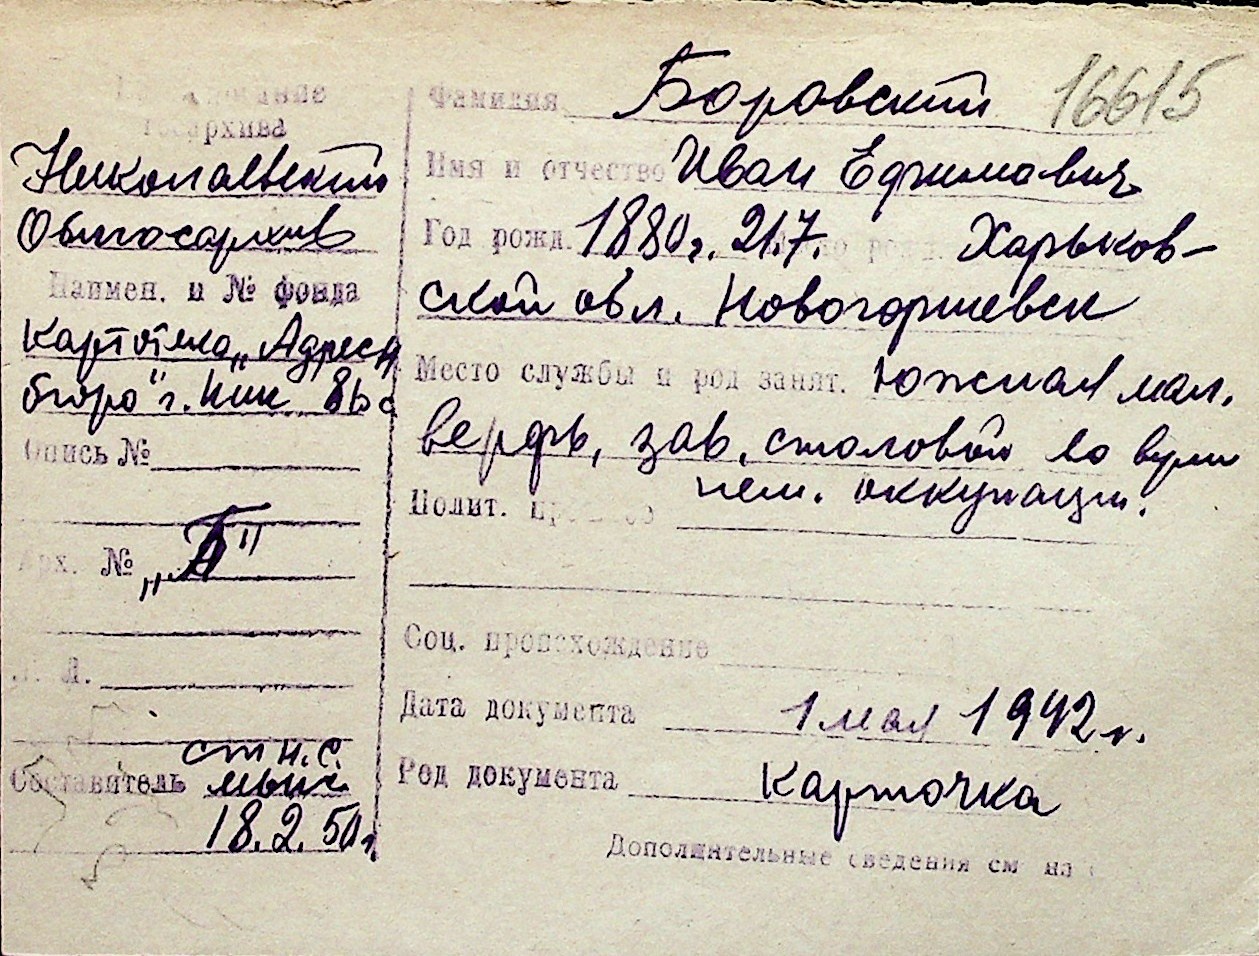 Наименование
госархива
Николаевский
Облгосархив
Наимен. и № фонда
Картотека „Адресн
бюро" г. Ник
Опись №
Арх. № „Б"
Составитель
ст н.с.
18.2.50 г.
Фамилия Боровский 16615
Имя и отчество Иван Ефимович
Год рожд. 1880 г. 21.7. Харьков-
ской обл.
Место службы и род занят. Южная мал.
верфь, зав. столовой во врем
нем. оккупации.
Полит.
Соц. происхождение
Дата документа 1 мая 1942 г.
Род документа Карточка
Дополнительные сведения см на